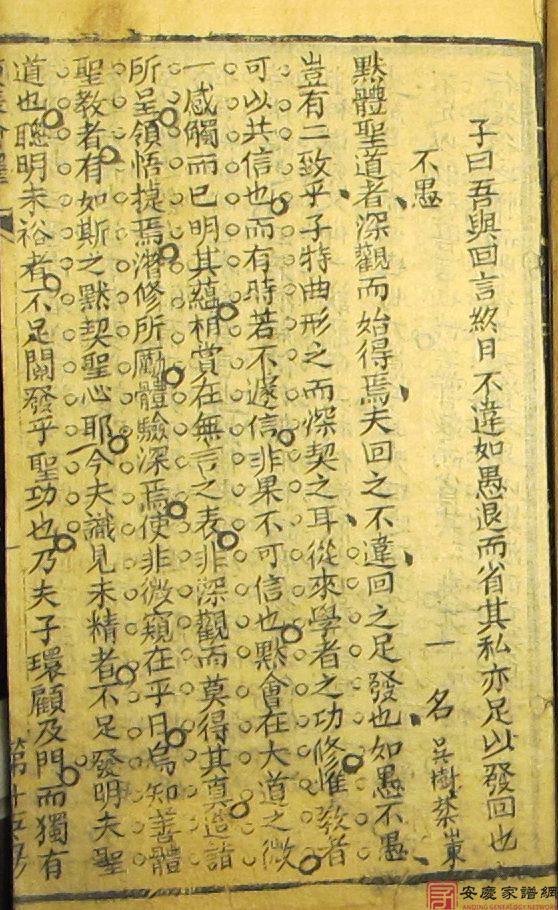 子曰吾與回言終日不違如愚退而省其私亦足以發回也
不愚 一名 吳樹棻 山東
默體聖道者深觀而始得焉夫回之不違回之足發也如愚不愚
豈有二致乎子特曲形之而深契之耳從來學者之功修惟教者
可以共信也而有時若不遽信非果不可信也默會在大道之微
一感觸而已明其蘊相賞在無言之表非深觀而莫得其真造詣
所呈領悟捷焉潛修所勵體驗深焉使非微窺在平日烏知善體
聖教者有如斯之默契聖心耶今夫識見未精者不足發明夫聖
道也聰明未裕者不足闡發乎聖功也乃夫子環顧及門而獨有
安慶家譜網
ANQING GENEALOGY NETWORK